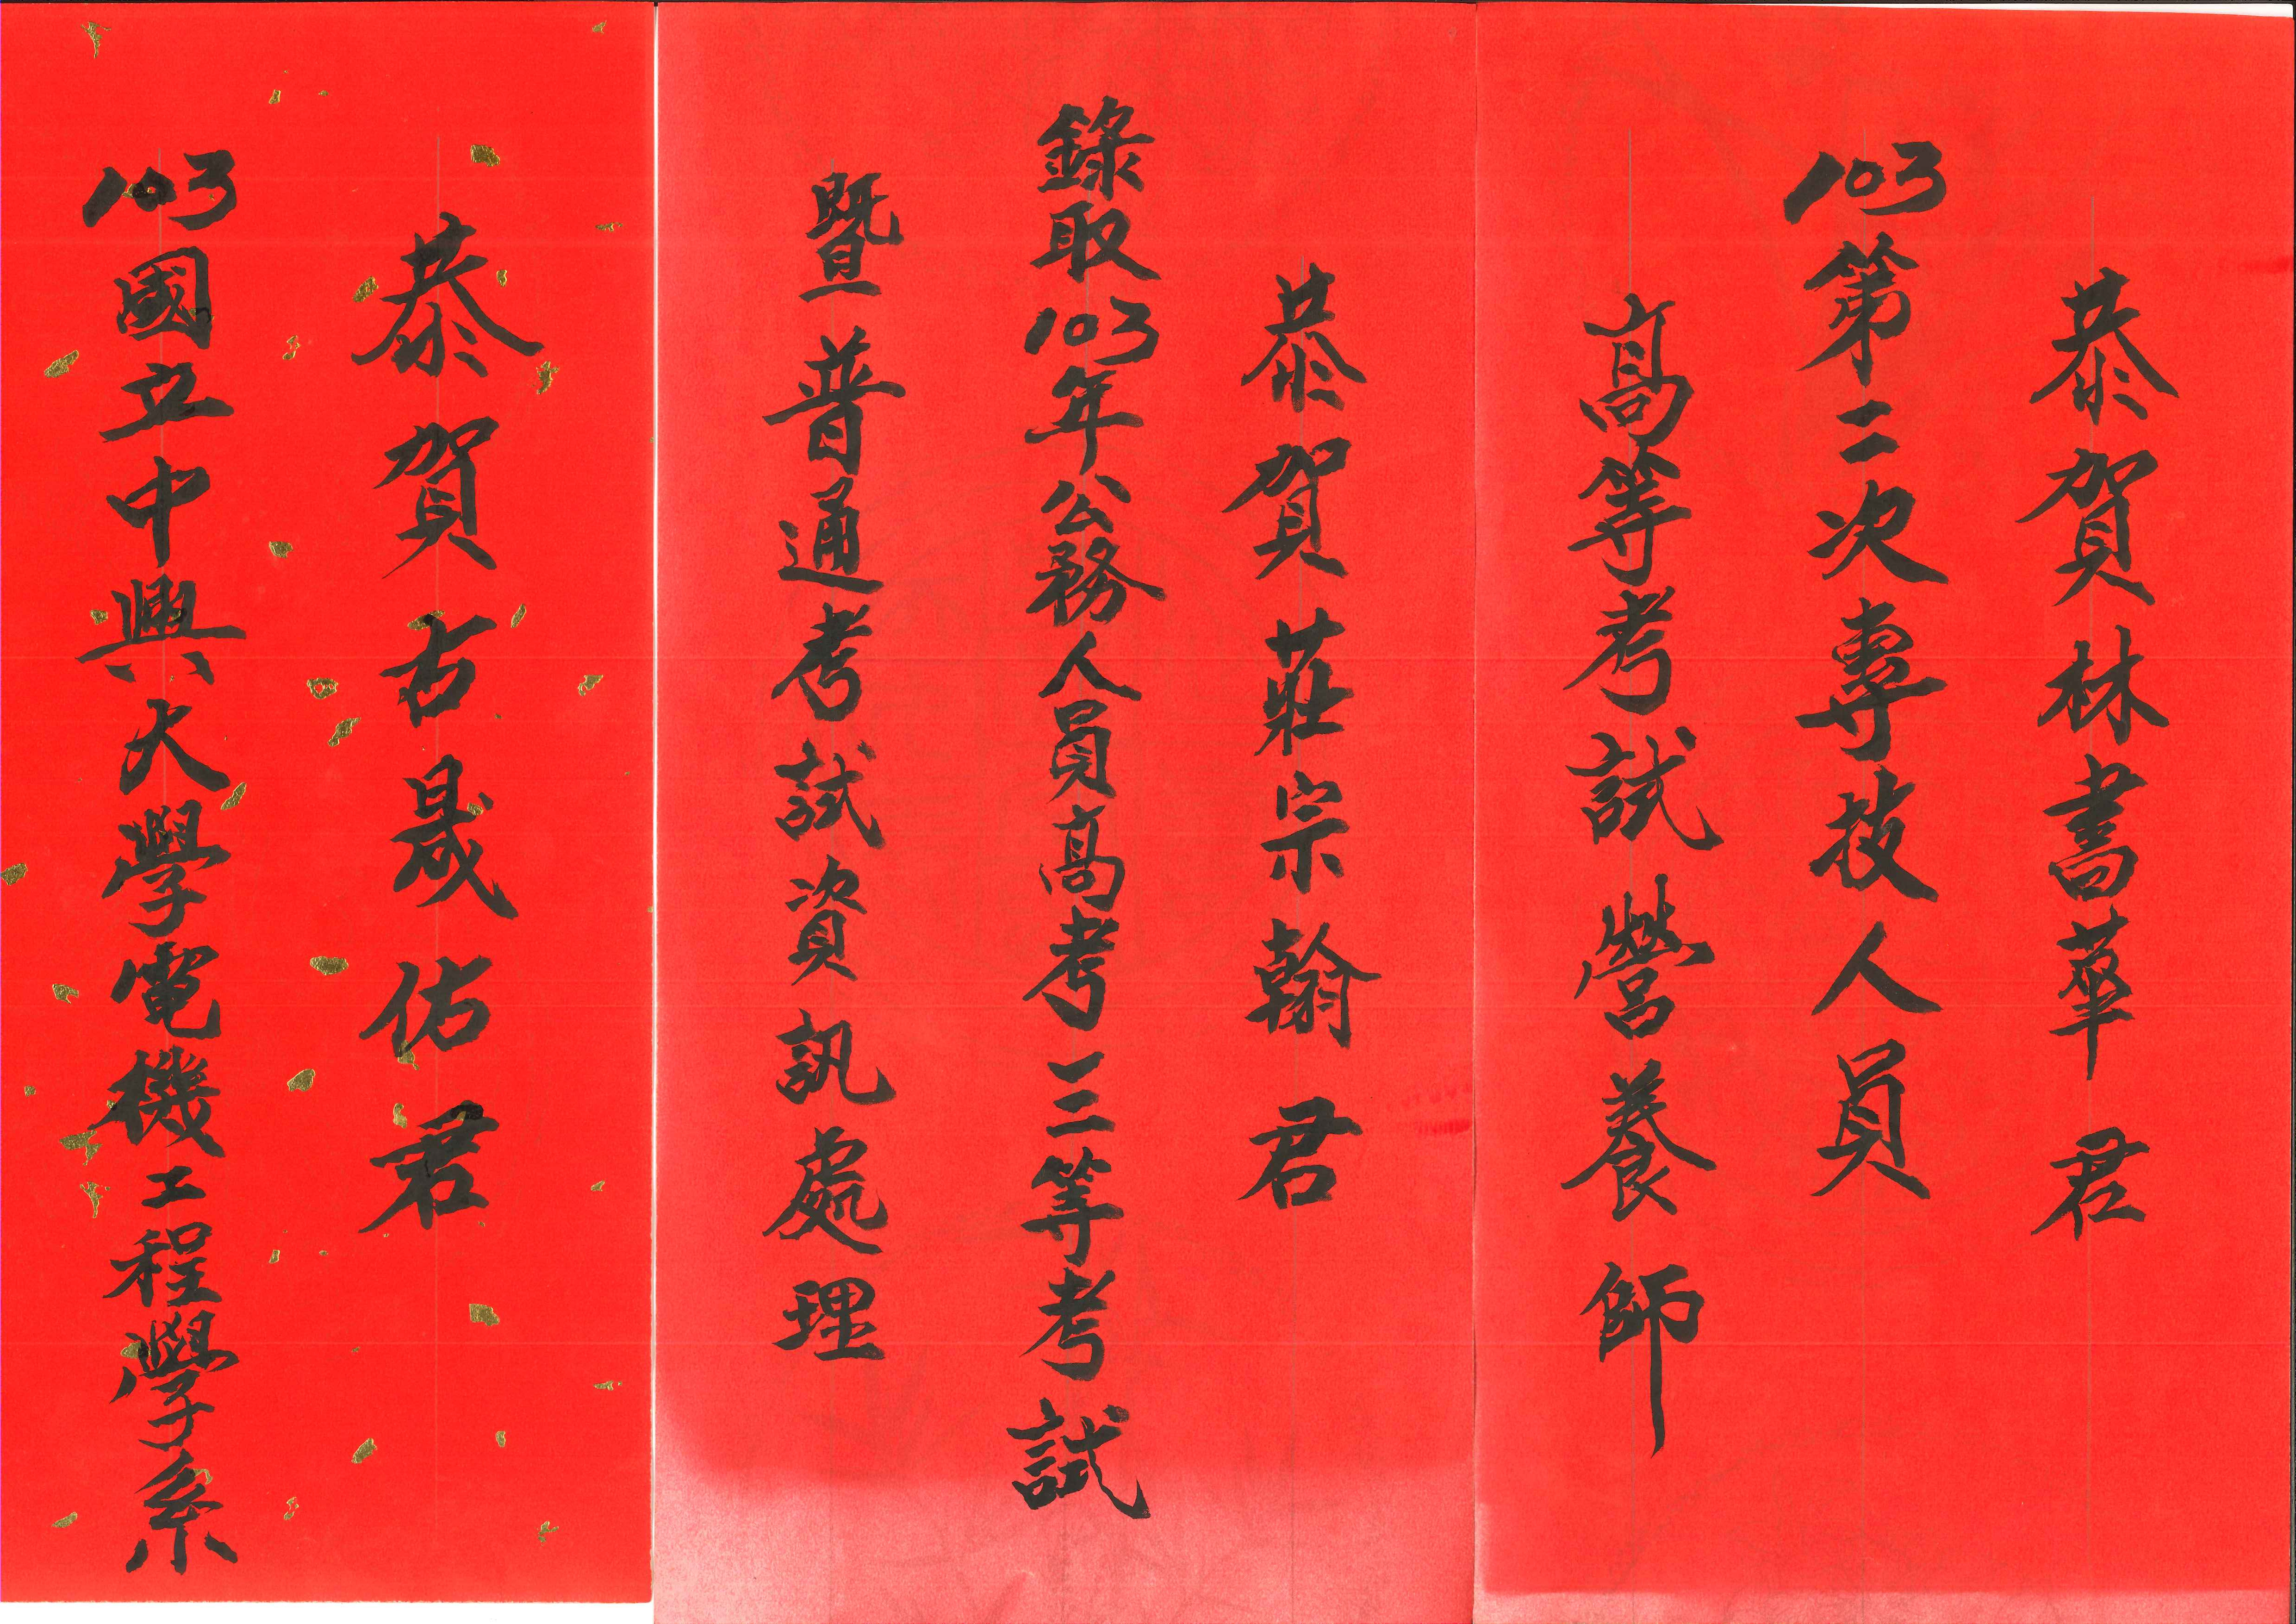 恭賀林書華君
103第二次專技人員
高等考試營養師
恭賀莊宗翰君
錄取103年公務人員高考三等考試
暨普通考試資訊處理
恭賀古晟佑君
103國立中興大學電機工程學系